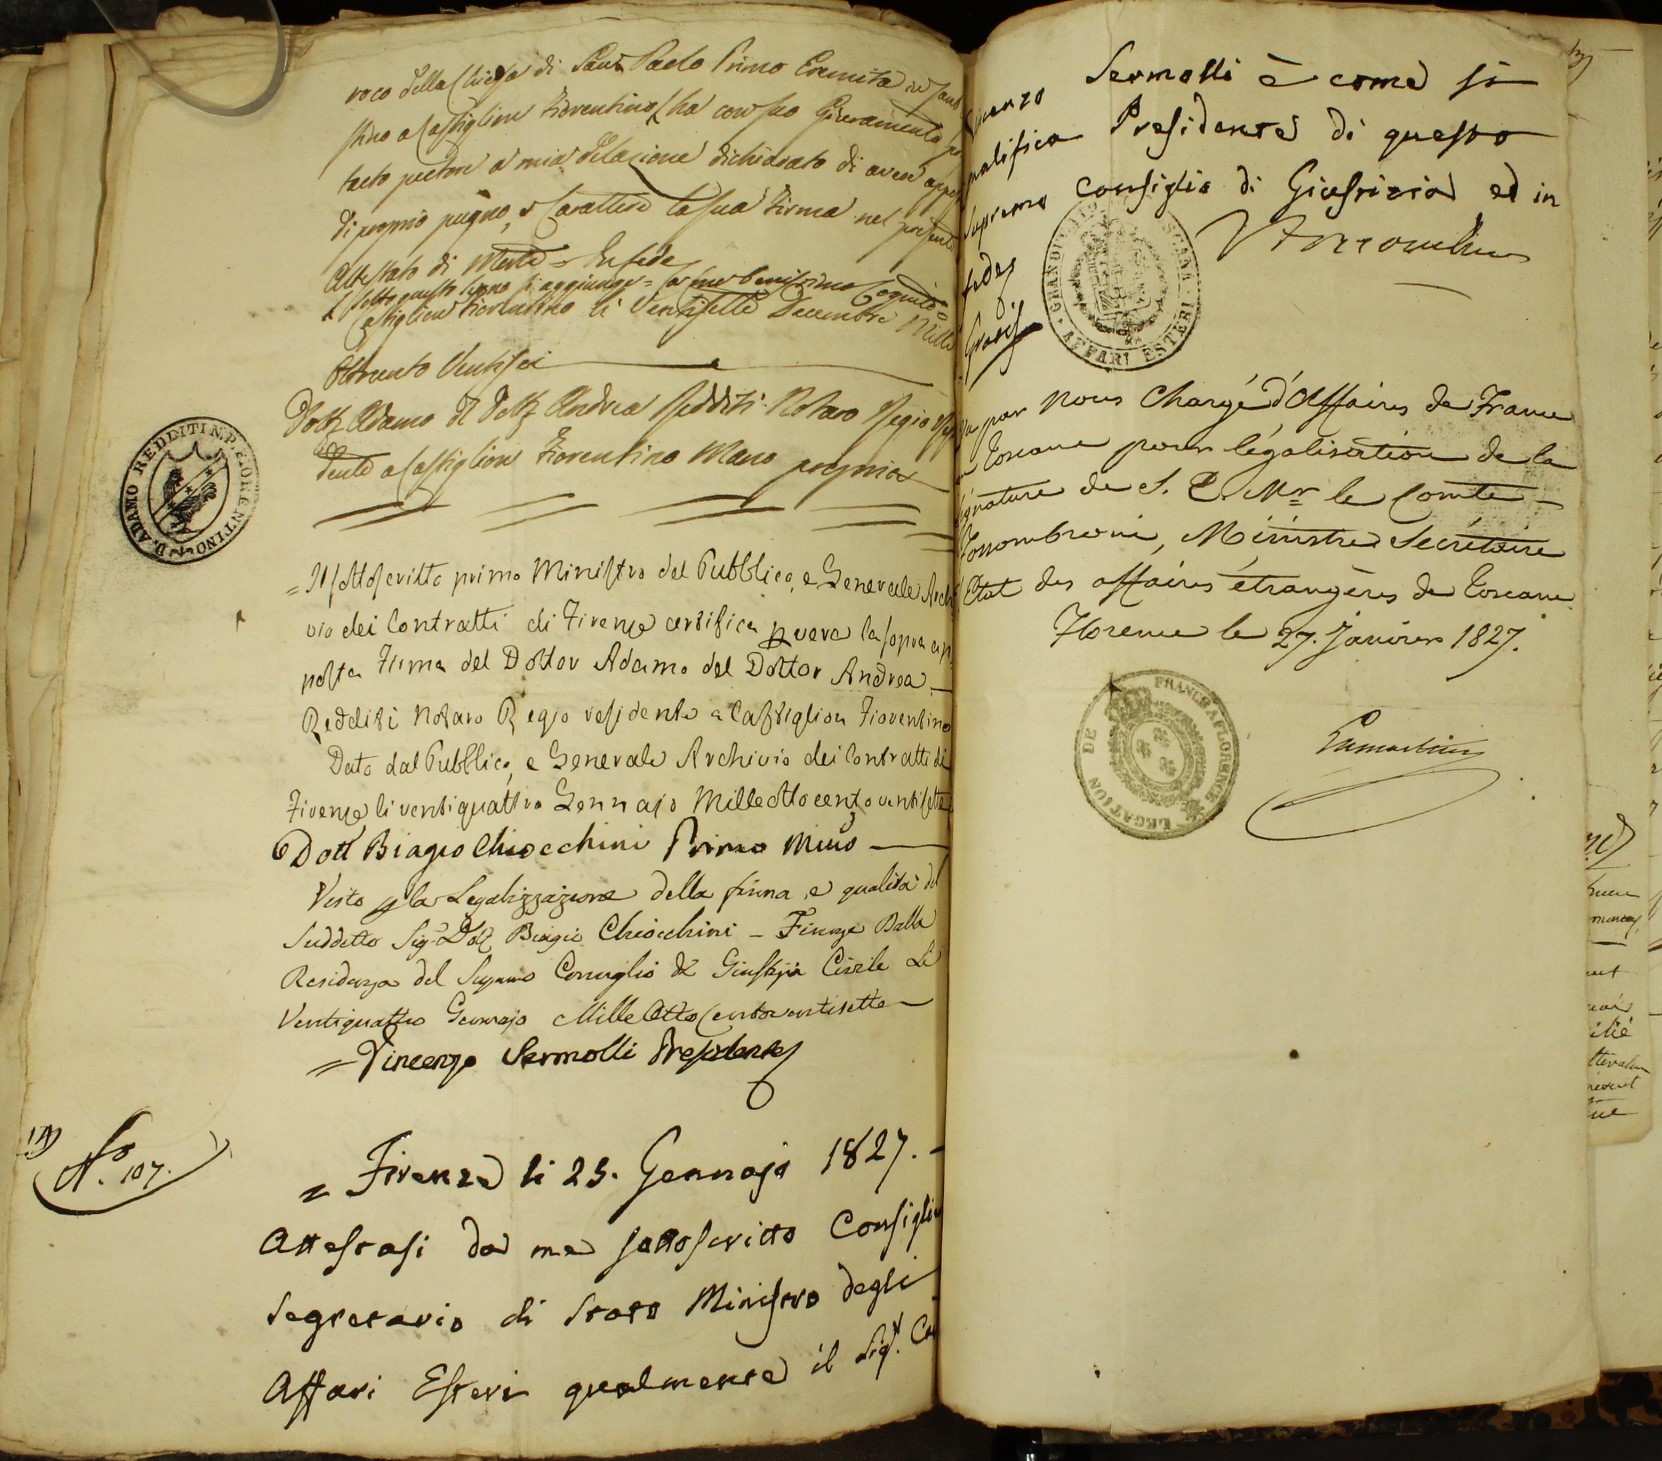 roco della Chiesa di San Paolo Primo Eremita
stino a Castiglion Fiorentino, ha con suo Giuramento
tacto pectore a mia delazione dichiarato di avere
di proprio pugno, e Carattere la sua Firma nel presente
Attestato di Morte = In fede
e sotto questo segno si aggiunge = da me benissimo Cognito =
Castiglion Fiorentino li Ventisette Decembre Mille
Ottocento Ventisei
Dott. Adamo del Dott. Andrea Redditi Notaro Regio
dente a Castiglion Fiorentino Mano propria
D. ADAMO REDDITI N. P. FIORENTINO
= Il sottoscritto primo Ministro del Pubblico, e Generale Archi
vio dei Contratti di Firenze certifica vera la sopra ap
posta Firma del Dottor Adamo del Dottor Andrea
Redditi Notaro Regio residente a Castiglion Fiorentino
Dato dal Pubblico, e Generale Archivio dei Contratti di
Firenze li ventiquattro Gennajo Milleottocentoventisette
Dott Biagio Chiocchini Primo Mino
Visto p la Legalizzazione della firma, e qualità del
Suddetto Sig. Dott. Biagio Chiocchini - Firenze Dalla
Residenza del Supremo Consiglio di Giustizia Civile Li
Ventiquattro Gennajo Mille Otto Cento ventisette
= Vincenzo Sermolli Presidente
No. 107.
= Firenze li 25. Gennajo 1827. -
Attestasi da me sottoscritto Consiglie
Segretario di Stato Ministro degli
Affari Esteri qualmente il Sigr. Ca
Vincenzo Sermolli è come si
qualifica Presidente di questo
Supremo Consiglio di Giustizia ed in
fede
Gratis
V Fossombroni
GRANDUCATO AFFARI ESTERI
Vu par Nous Chargé d'Affaires de France
en Toscane pour légalisation de la
signature de S. E. Mr le Comte
Fossombroni, Ministre Secrétaire
d'Etat des affaires étrangères de Toscane.
Florence le 27. Janvier 1827.
Lamartine
LEGATION DE FRANCE A FLORENCE